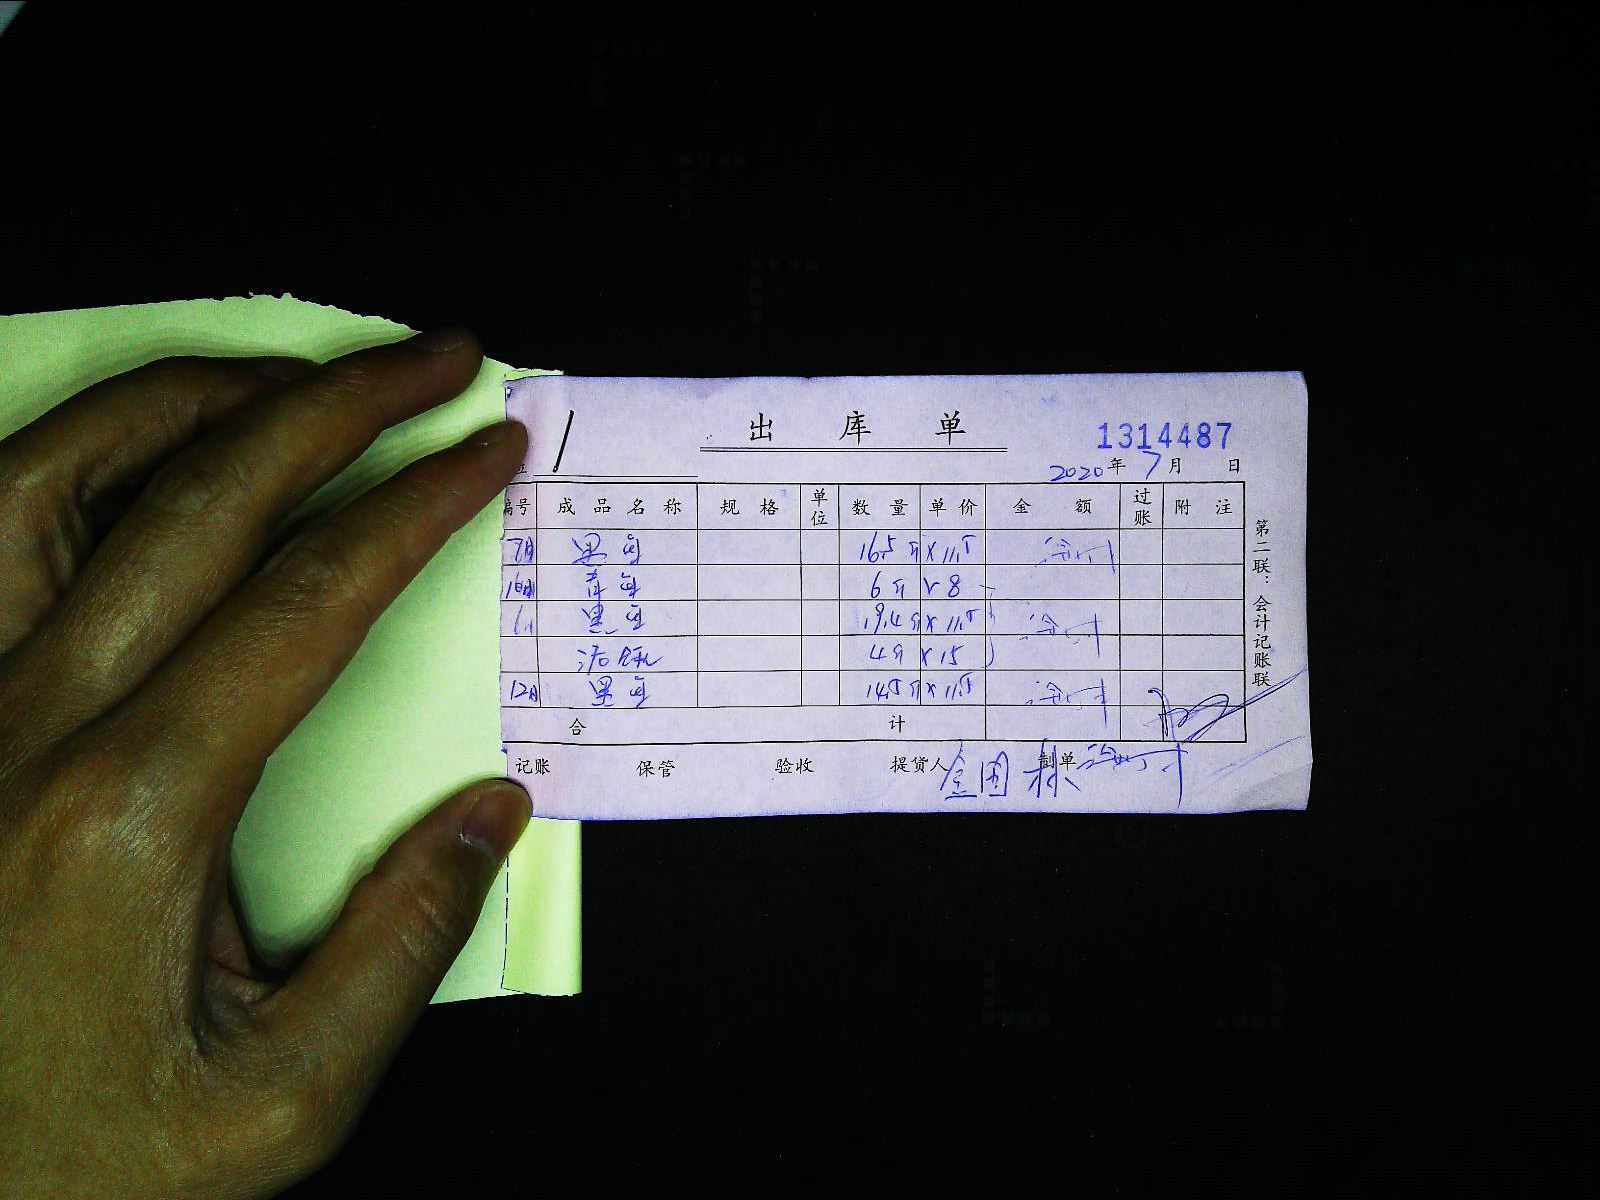 出库单
1314487
2020年7月 日
编号 成品名称 规格 单位 数量 单价 金额 过账 附注
7月 黑鱼 16.5斤 ×11.5
10月 青鱼 6斤 ×8
11 黑鱼 19.4斤 ×11.5
4斤 ×15
12月 黑鱼 14.5斤 ×11.5
合计
记账 保管 验收 提货人 金国林 制单
第二联：会计记账联